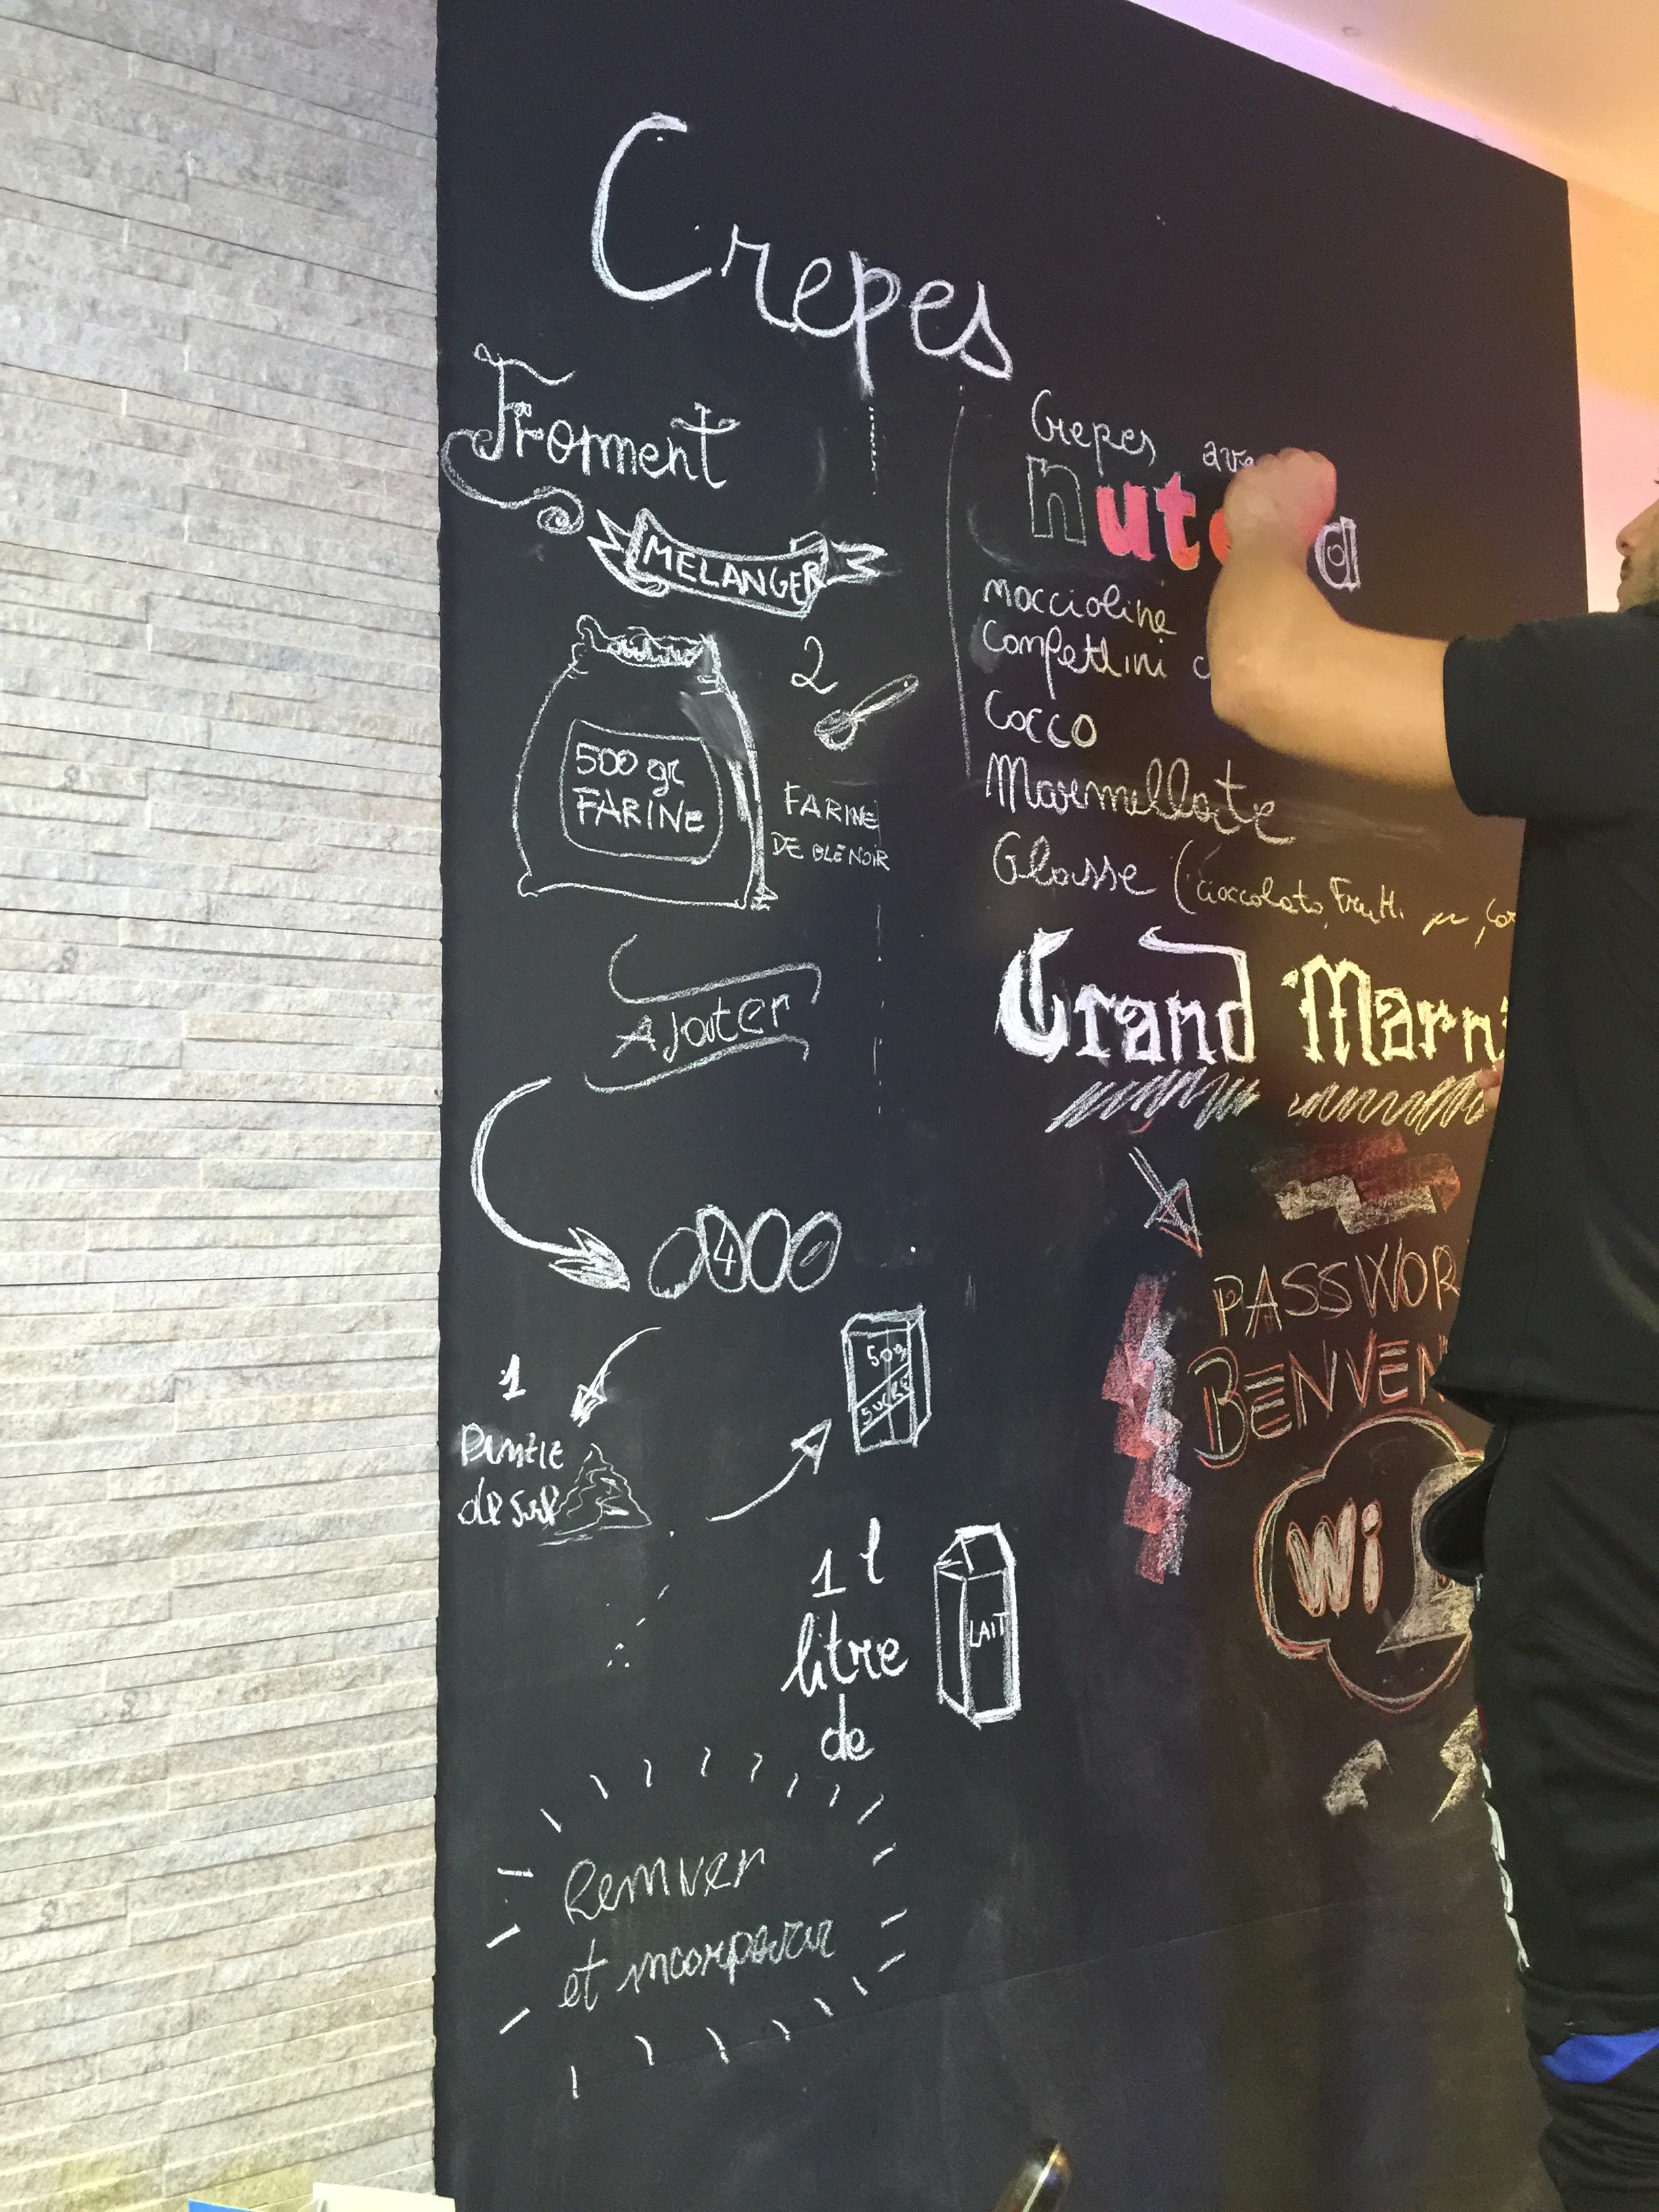 Crepes
Froment
MELANGER
500 gr
FARINE
2
FARINE
DE BLE NOIR
AJOUTER
4
1
de
50g
SUCRE
1 l
litre
de
LAIT
Remuer
et incorporer
Crepes ave
nut a
noccioline
Confettini
Cocco
Marmellate
Glasse (cioccolato, Frutti
Grand Marn
PASSWOR
BENVEN
Wi